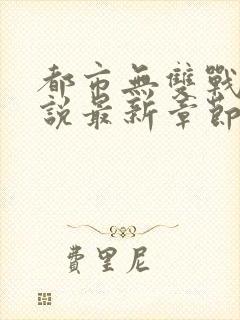 都市無雙戰
說最新章節
費里尼